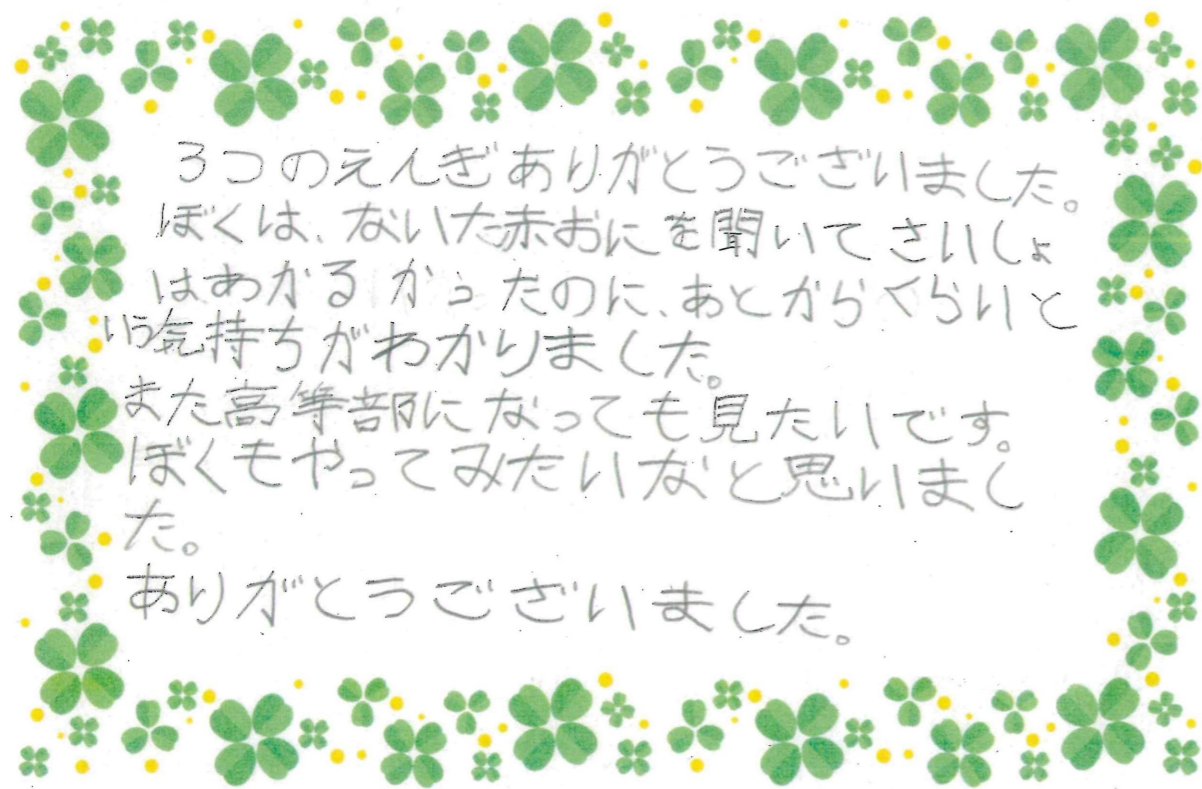 3つのえんぎありがとうございました。
ぼくは、ないた赤おにを聞いてさいしょ
はわかるかったのに、あとからくらいと
いう気持ちがわかりました。
また高等部になっても見たいです。
ぼくもやってみたいなと思いまし
た。
ありがとうございました。